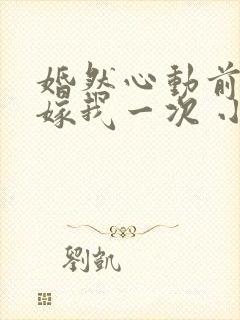 婚然心动前
嫁我一次 小
劉凱